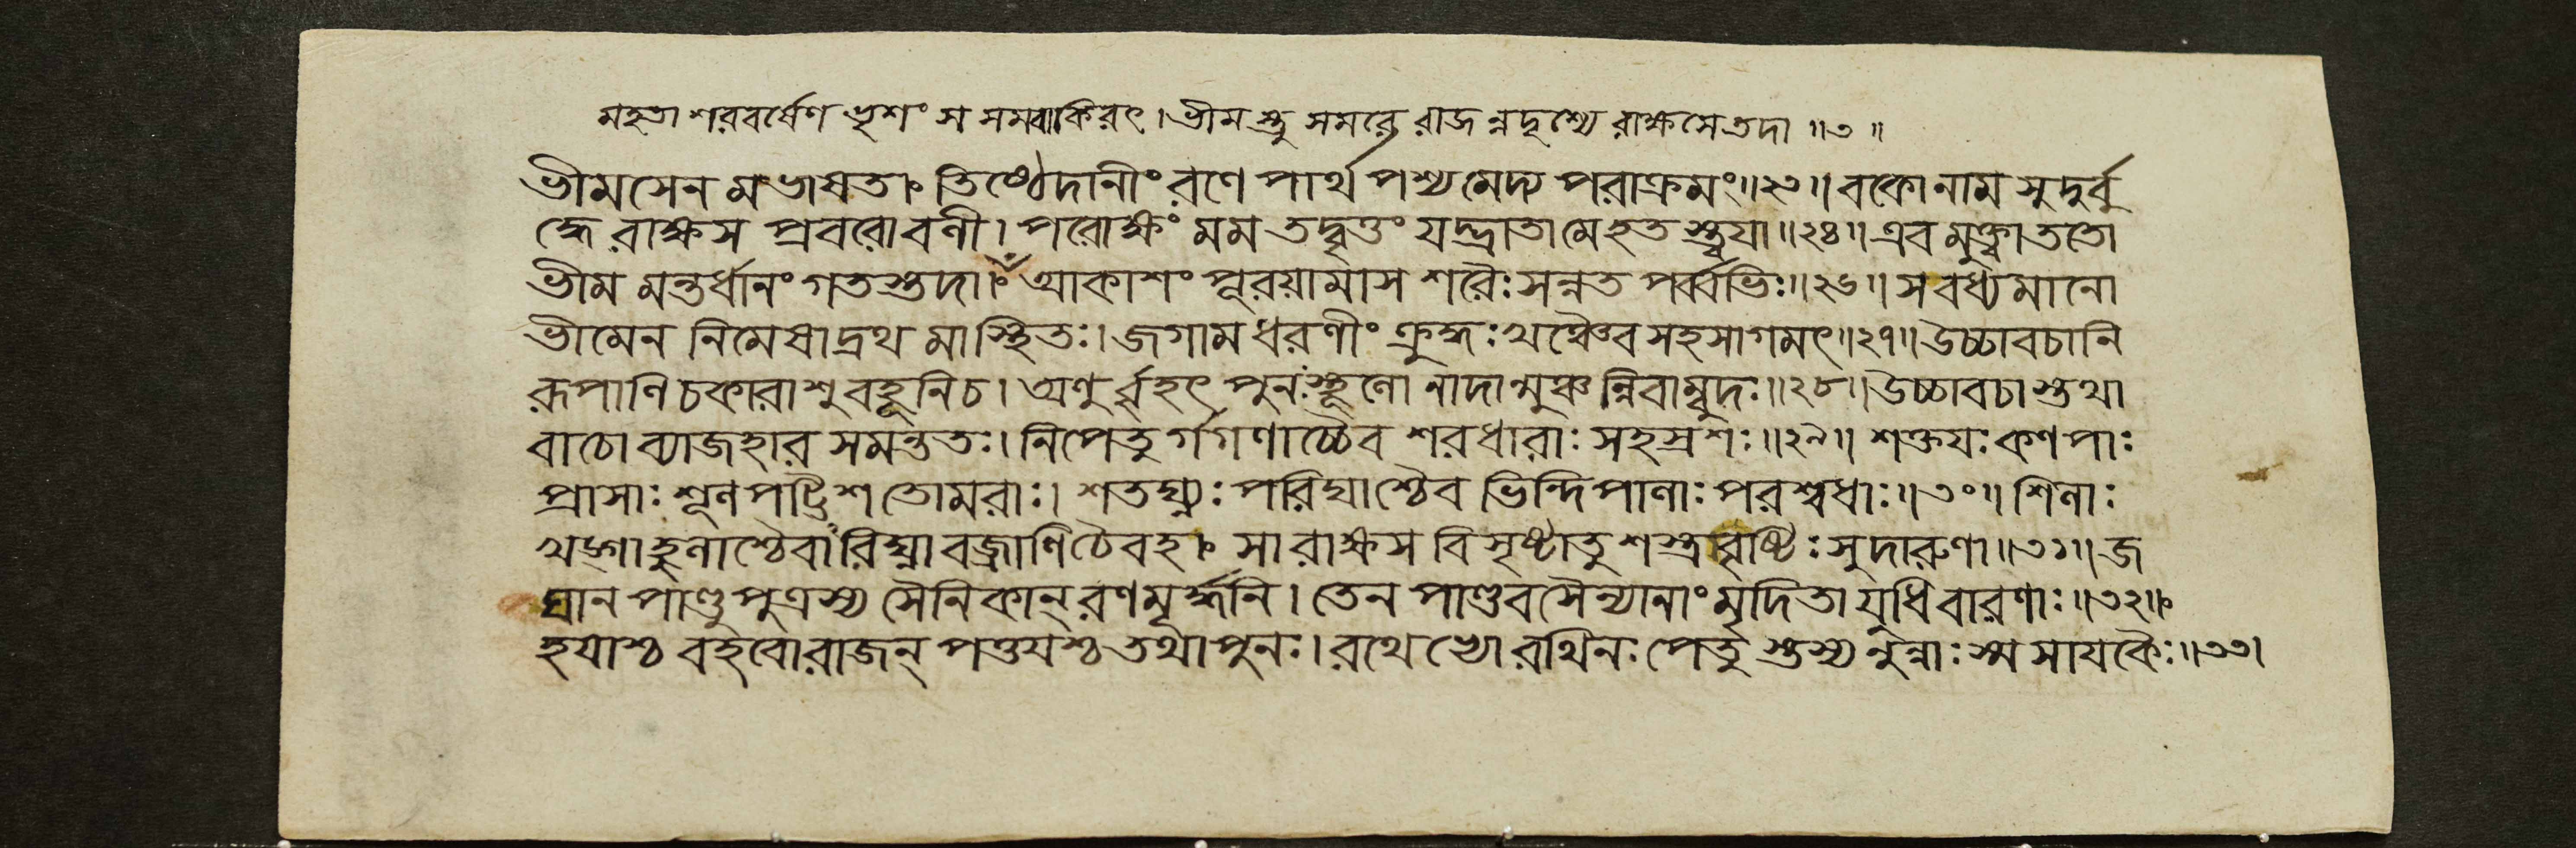 মহতা শরবর্ষেণ ভৃশং স সমবাকিরৎ। ভীমস্তু সমরে রাজন্নদৃশ্যে রাক্ষসে তদা॥৩॥
ভীমসেন মভাষত। তিষ্ঠেদানীং রণে পার্থ পশ্য মেদ্য পরাক্রমং॥২৩॥ বকো নাম সুদুর্বু
দ্ধে রাক্ষস প্রবরো বলী। পরোক্ষং মম তদ্বৃত্তং যদ্ভ্রাতা মে হত স্ত্বয়া॥২৪॥ এব মুক্ত্বা ততো
ভীম মন্তর্ধানং গতস্তদা। আকাশং পূরয়ামাস শরৈঃ সন্নত পর্ব্বভিঃ॥২৬॥ স বধ্যমানো
ভীমেন নিমেষাদ্রথ মাস্থিতঃ। জগাম ধরণীং ক্রুদ্ধঃ খঞ্চৈব সহসাগমৎ॥২৭॥ উচ্চাবচানি
রূপাণি চকারাশু বহূনি চ। অণু র্ব্বৃহৎ পুনঃস্থূলো নাদান্মুঞ্চন্নিবাম্বুদঃ॥২৮॥ উচ্চাবচাস্তথা
বাচো ব্যাজহার সমন্ততঃ। নিপেতু র্গগণাচ্চৈব শরধারাঃ সহস্রশঃ॥২৯॥ শক্তয়ঃ কণপাঃ
প্রাসাঃ শূল পট্টিশ তোমরাঃ। শতঘ্ন্যঃ পরিঘাশ্চৈব ভিন্দিপালাঃ পরশ্বধাঃ॥৩০॥ শিলাঃ
খঙ্গা হুলাশ্চৈবারিঘ্না বজ্রাণি চৈব হ। সা রাক্ষস বিসৃষ্টাতু শস্ত্রবৃষ্টিঃ সুদারুণা॥৩১॥ জ
ঘান পাণ্ডু পুত্রস্য সৈনিকান্ রণমূর্দ্ধনি। তেন পাণ্ডব সৈন্যানাং মৃদিতা যুধি বারণাঃ॥৩২॥
হয়াশ্চ বহবো রাজন্ পত্তয়শ্চ তথা পুনঃ। রথেভ্যো রথিনঃ পেতু স্তস্য নুন্নাঃ স্ম সায়কৈঃ॥৩৩।